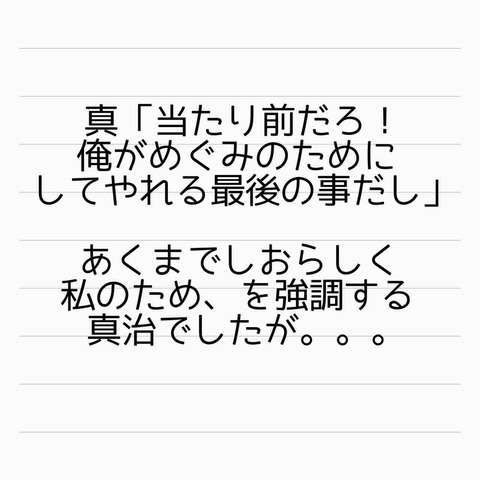 真「当たり前だろ！
俺がめぐみのために
してやれる最後の事だし」
あくまでしおらしく
私のため、を強調する
真治でしたが。。。